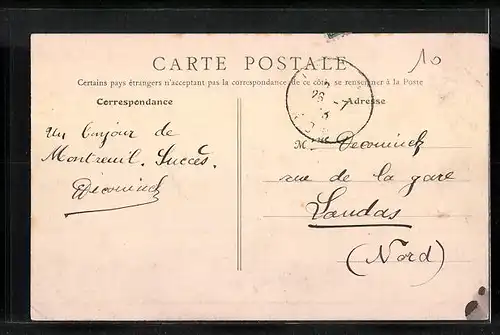 10
CARTE POSTALE
Certains pays étrangers n'acceptant pas la correspondance de ce côté, se renseigner à la Poste
Correspondance
Adresse
un bonjour de
Montreuil. Succès.
Decominck
M. Decominck
rue de la gare
Landas
(Nord)